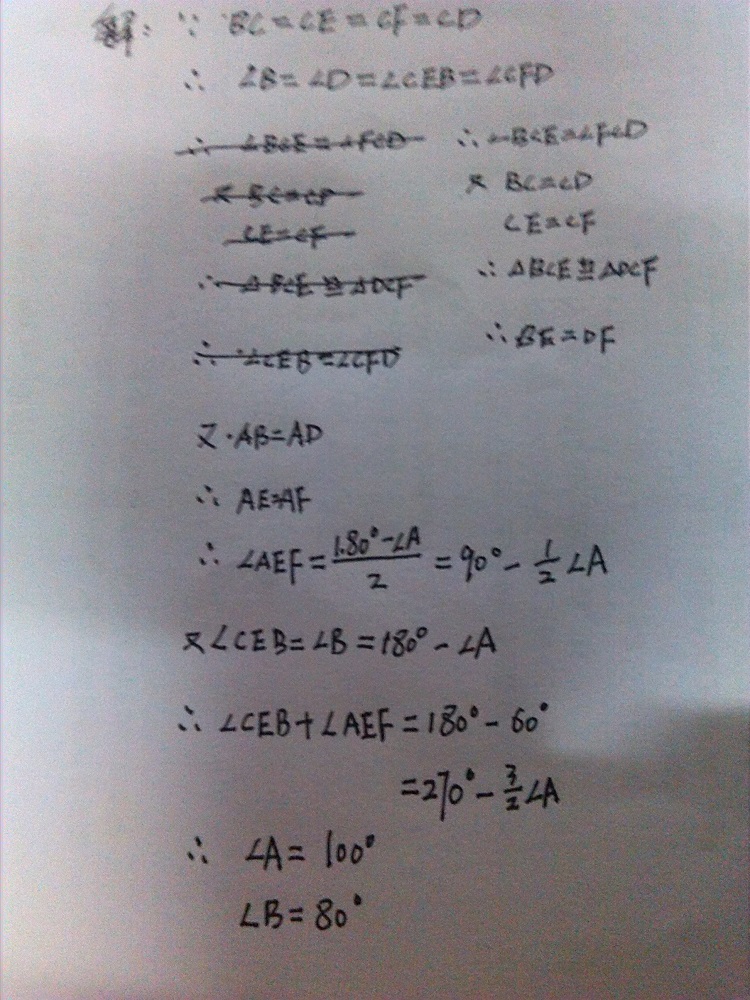 解: ∵ BC=CE=CF=CD
∴ ∠B=∠D=∠CEB=∠CFD
∴ ∠BCE=∠FCD ∴ ∠BCE=∠FCD
又 BC=CD 又 BC=CD
CE=CF CE=CF
∴ △BCE≌△DCF ∴ △BCE≌△DCF
∴ ∠CEB=∠CFD ∴ BE=DF
又·AB=AD
∴ AE=AF
∴ ∠AEF=(180°-∠A)/2=90°-1/2∠A
又∠CEB=∠B=180°-∠A
∴ ∠CEB+∠AEF=180°-60°
=270°-3/2∠A
∴ ∠A=100°
∠B=80°